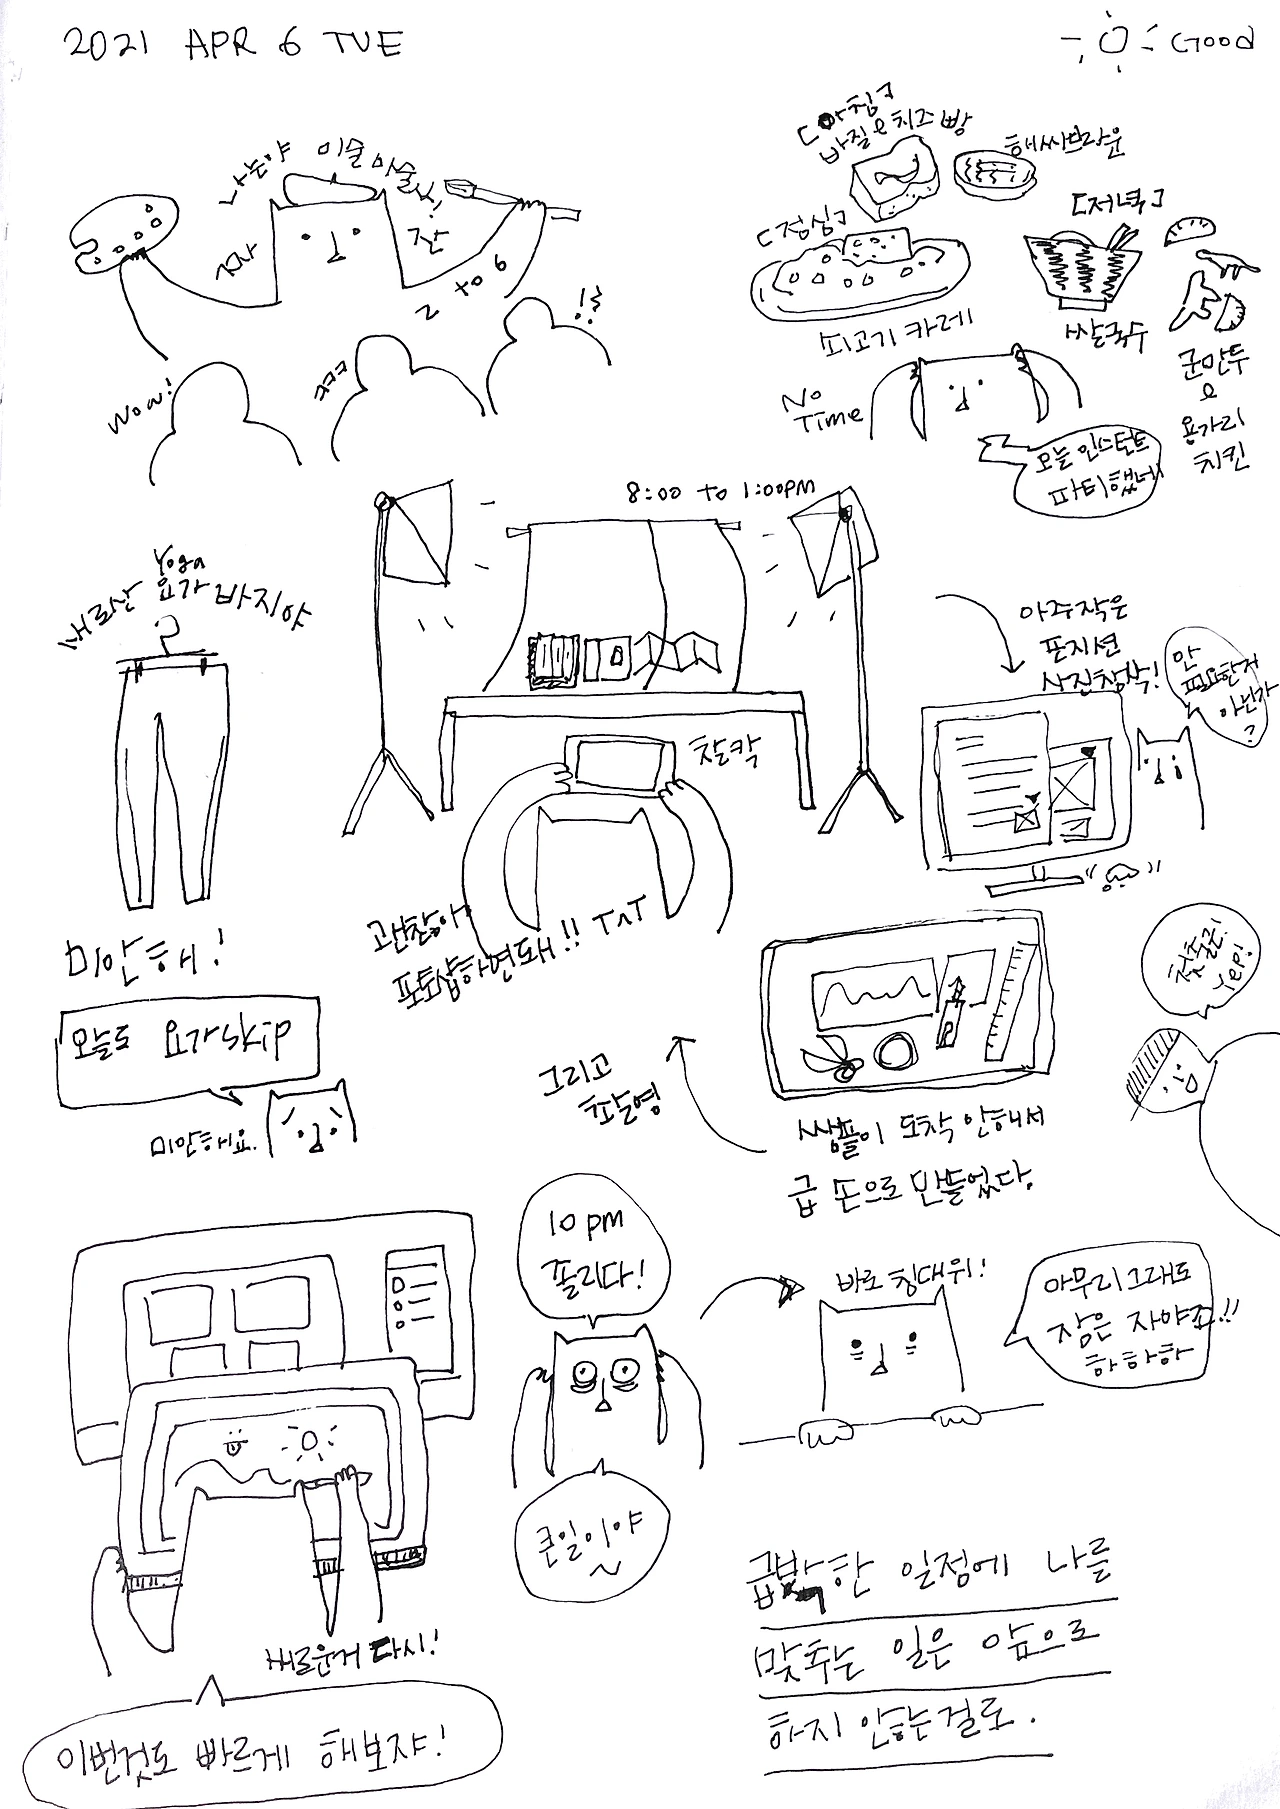 2021 APR 6 TUE
Good
나는야 미술 마술사!
자 잔
2 to 6
Wow!
ㅋㅋㅋ
!?
[아침]
바질&치즈빵
해쉬브라운
[점심]
쇠고기 카레
[저녁]
쌀국수
군만두
&
용가리
치킨
No
Time
오늘 인스턴트
파티했네
8:00 to 1:00PM
찰칵
괜찮아
포토샵하면돼!! TㅅT
Yoga
새로산 요가 바지야
미안해!
오늘도 요가skip
미안해요.
아주작은
포지션
사진찰칵!
안
필요한거
아닌가
?
그리고
촬영
샘플이 도착 안해서
급 손으로 만들었다.
Yep!
새로운거 다시!
이번것도 빠르게 해보쟈!
10 pm
졸리다!
큰일이야
~
바로 침대위!
아무리그래도
잠은 자야죠!!
하하하
급박한 일정에 나를
맞추는 일은 앞으로
하지 않는걸로.